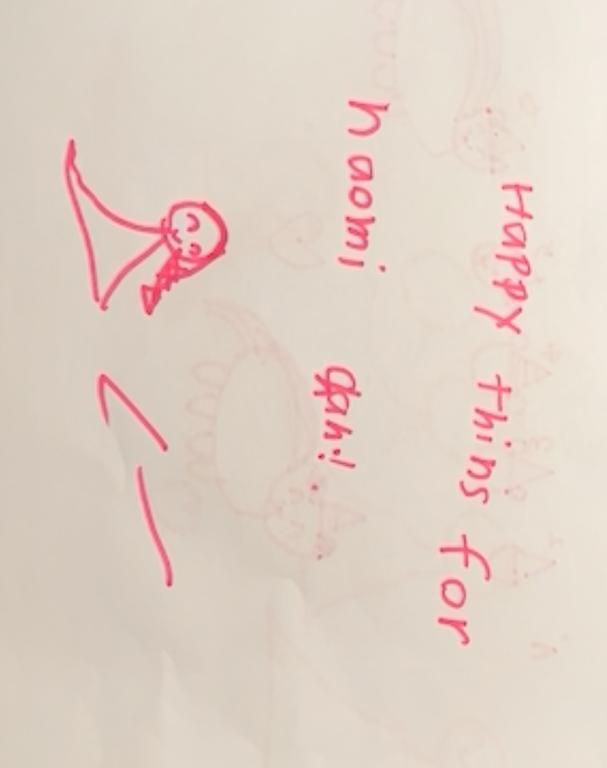 Happy thins for
naomi